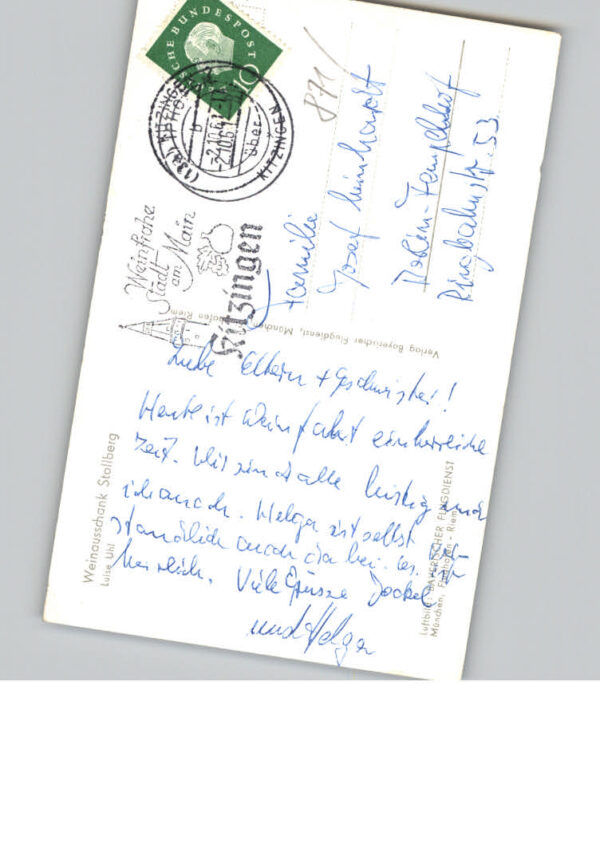 DEUTSCHE BUNDESPOST
10
(13a) KITZINGEN
-2.10.61
über
KITZINGEN
Weinfrohe
Stadt
am Main
Kitzingen
871/
Familie
Josef
Berlin-Tempelhof
Ringbahnstr. 53
Verlag Bayerischer Flugdienst, München
Riem
Liebe Eltern + Geschwister!
Heute ist Weinfahrt eine herrliche
Zeit. Wir sind alle lustig und
ich auch. Helga ist selbst
ständlich auch dabei. es ist
herrlich. Viele Grüsse
und Helga
Weinausschank Stollberg
Luise Uhl
Luftbild: BAYERISCHER FLUGDIENST
München, Flughafen - Riem